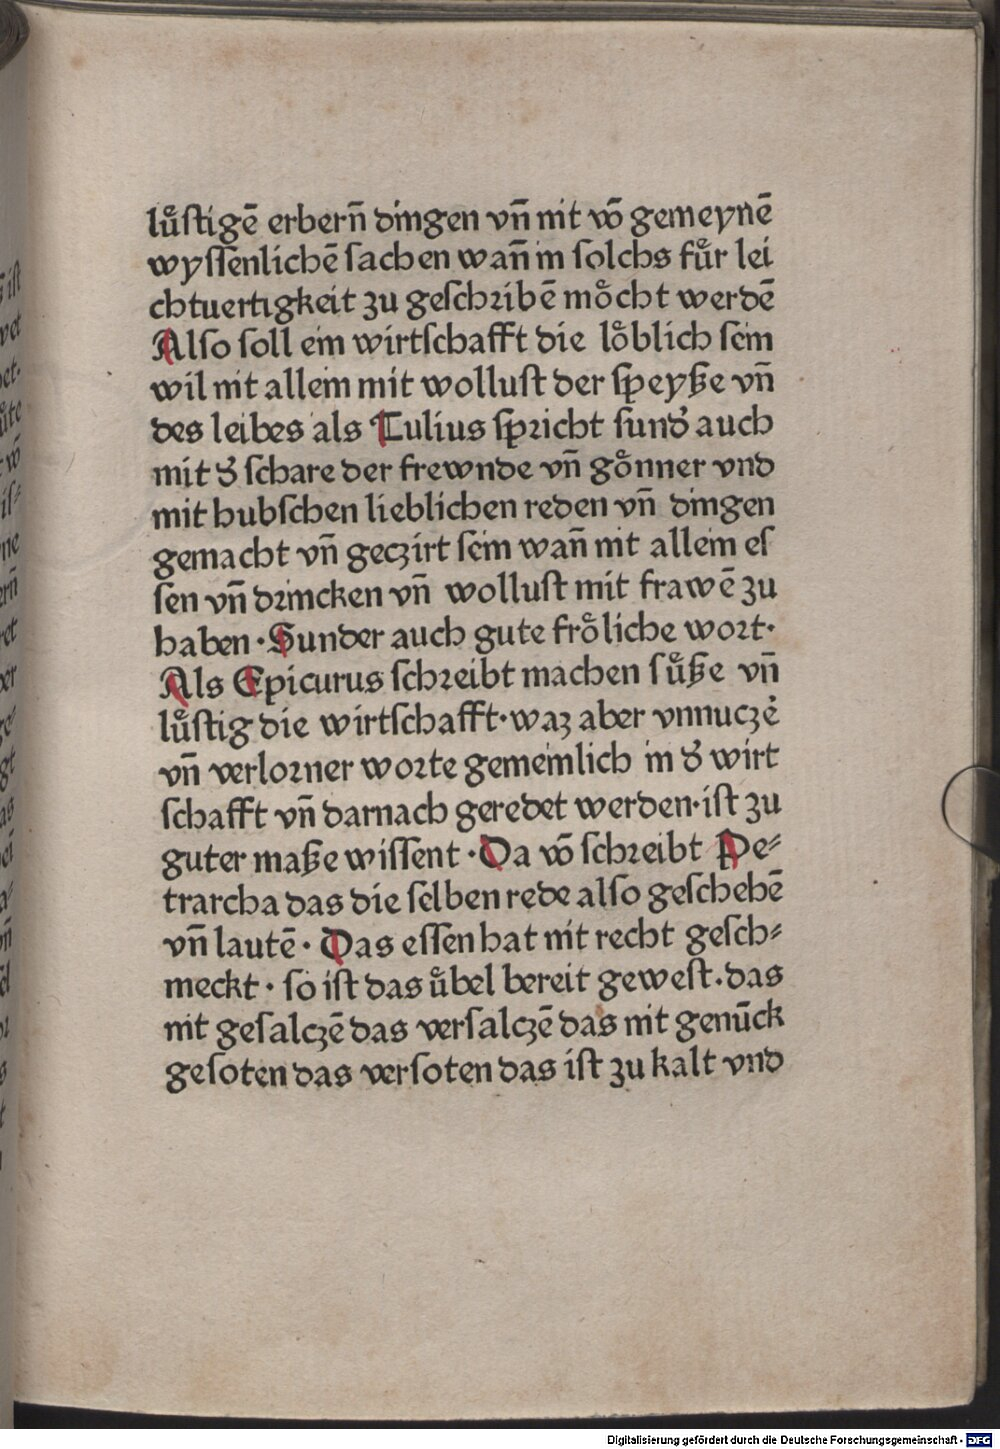 lůſtigē erbern̄ dingen vn̄ nit vō gemeynē
wyſſenlichē ſachen wan̄ in ſolchs fůr lei
chtuertigkeit zu geſchribē mo̊cht werdē
Alſo ſoll ein wirtſchafft die lo̊blich ſein
wil nit allein mit wolluſt der ſpeyße vn̄
des leibes als Tulius ſpricht ſund' auch
mit d' ſchare der frewnde vn̄ go̊nner vnd
mit hubſchen lieblichen reden vn̄ dingen
gemacht vn̄ geczirt ſein wan̄ nit allein eſ
ſen vn̄ drincken vn̄ wolluſt mit frawē zu
haben · Sunder auch gute fro̊liche wort·
Als Epicurus ſchreibt machen ſůße vn̄
lůſtig die wirtſchafft· waz aber vnnuczē
vn̄ verlorner worte gemeinlich in d' wirt
ſchafft vn̄ darnach geredet werden· iſt zu
guter maße wiſſent · Da vō ſchreibt Pe⸗
trarcha das die ſelben rede alſo geſchehē
vn̄ lautē · Das eſſen hat nit recht geſch⸗
meckt · ſo iſt das ůbel bereit geweſt· das
nit geſalczē das verſalczē das nit genūck
geſoten das verſoten das iſt zu kalt vnd
Digitalisierung gefördert durch die Deutsche Forschungsgemeinschaft - DFG